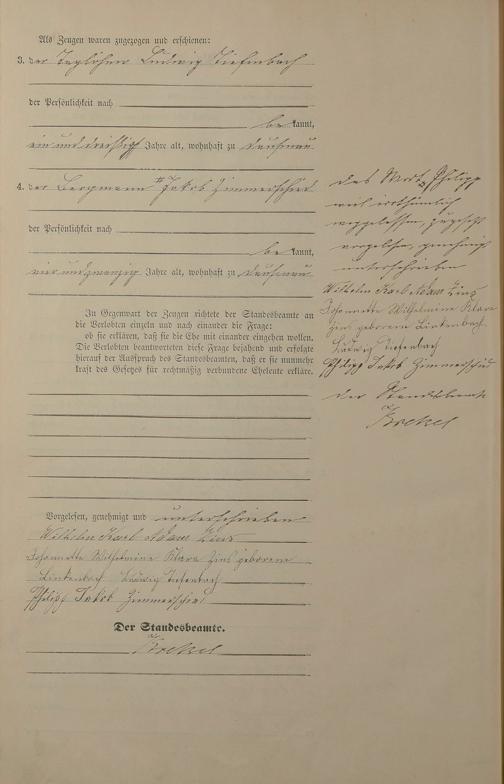 Als Zeugen waren zugezogen und erschienen:
3. der Taglöhner Ludwig Tiefenbach
der Persönlichkeit nach
be kannt,
ein und dreißig Jahre alt, wohnhaft zu Dausenau
4. der Bergmann # Jakob Zimmerschied
der Persönlichkeit nach
be kannt,
vier und zwanzig Jahre alt, wohnhaft zu Dausenau
In Gegenwart der Zeugen richtete der Standesbeamte an
die Verlobten einzeln und nach einander die Frage:
ob sie erklären, daß sie die Ehe mit einander eingehen wollen.
Die Verlobten beantworteten diese Frage bejahend und erfolgte
hierauf der Ausspruch des Standesbeamten, daß er sie nunmehr
kraft des Gesetzes für rechtmäßig verbundene Eheleute erkläre.
Vorgelesen, genehmigt und unterschrieben
Wilhelm Karl Adam Zins
Johannette Wilhelmine Klara Zins geborene
Linkenbach Ludwig Tiefenbach
Philipp Jakob Zimmerschied
Der Standesbeamte.
Brekel
das Wort Philipp
irrthümlich
weggelassen, zugesetzt
vorgelesen, genehmigt
unterschrieben
Wilhelm Karl Adam Zins
Johannette Wilhelmine Klara
Zins geborene Linkenbach
Ludwig Tiefenbach
Philipp Jakob Zimmerschied
der Standesbeamte
Brekel